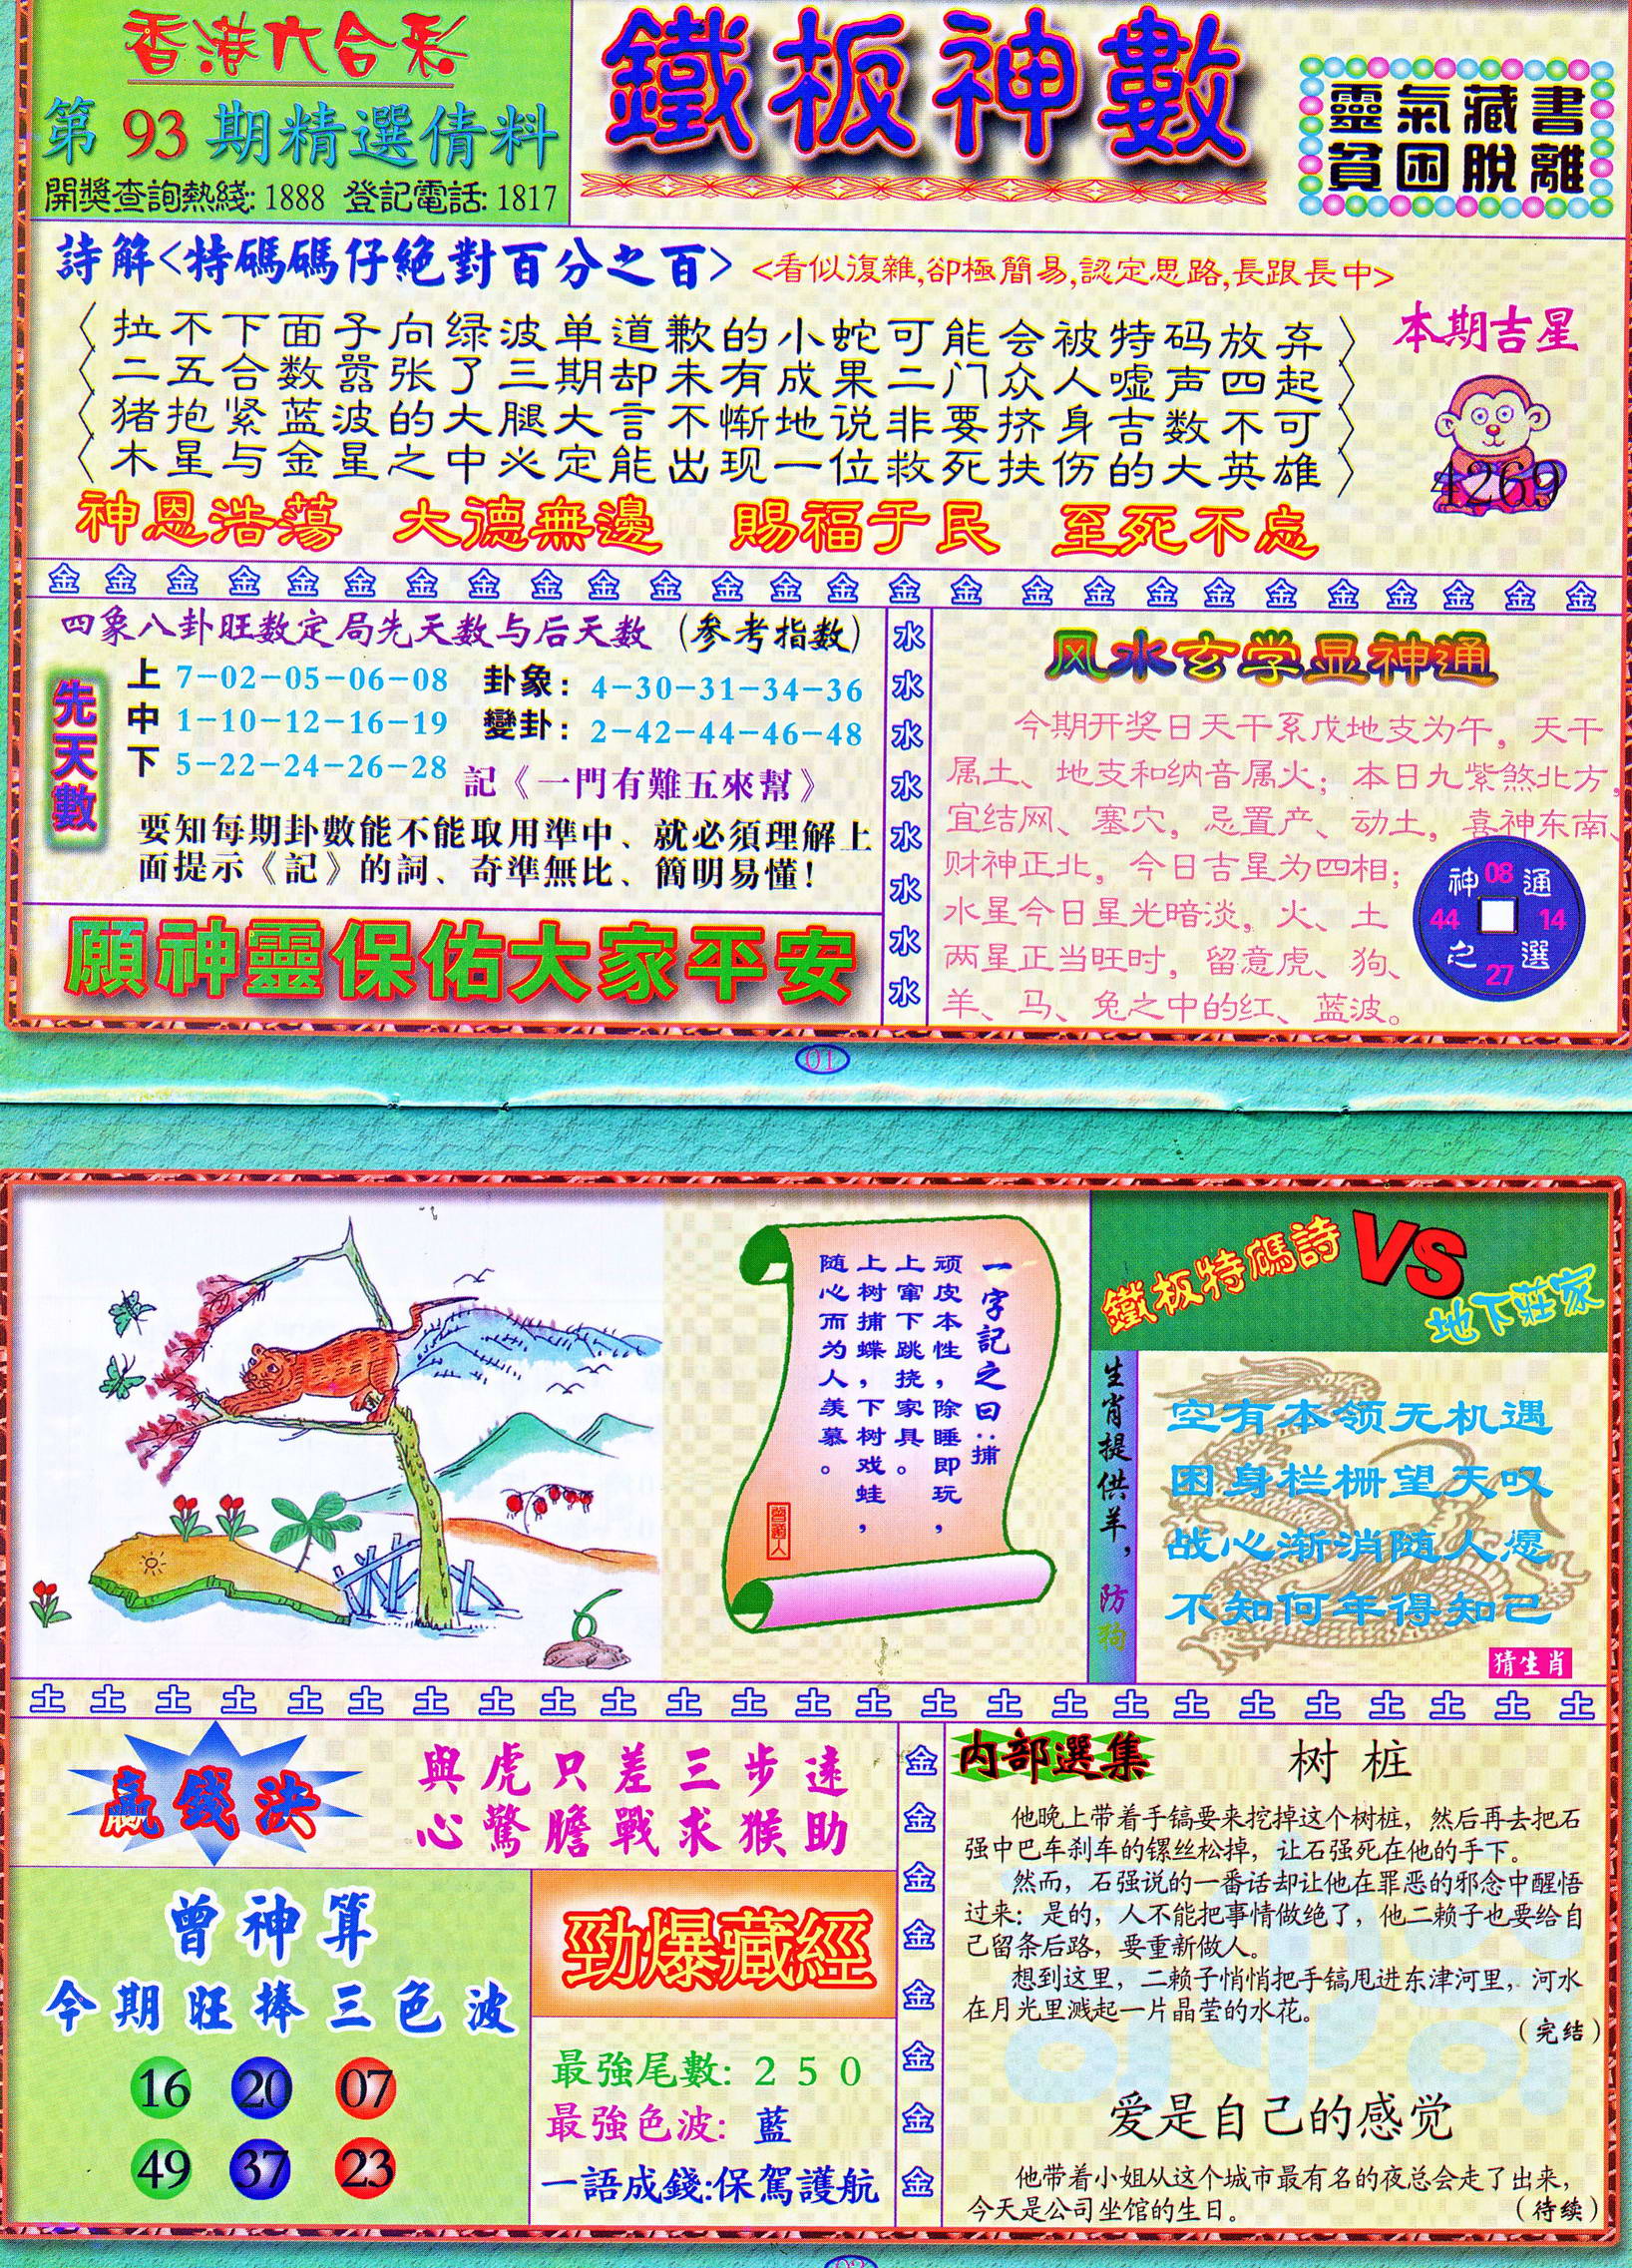 香港六合彩
第93期精選倩料
開獎查詢熱綫: 1888 登記電話: 1817
鐵板神數
靈氣藏書
貧困脫離
詩解<特碼碼仔絕對百分之百>
<看似復雜,卻極簡易,認定思路,長跟長中>
拉不下面子向绿波单道歉的小蛇可能会被特码放弃
二五合数嚣张了三期却未有成果二门众人嘘声四起
猪抱紧蓝波的大腿大言不惭地说非要挤身吉数不可
木星与金星之中必定能出现一位救死扶伤的大英雄
本期吉星
4269
神恩浩蕩 大德無邊 賜福于民 至死不忘
金 金 金 金 金 金 金 金 金 金 金 金 金 金 金 金 金 金 金 金 金 金 金 金 金
四象八卦旺数定局先天数与后天数 (参考指数)
先天數
上 7-02-05-06-08
中 1-10-12-16-19
下 5-22-24-26-28
卦象: 4-30-31-34-36
變卦: 2-42-44-46-48
記《一門有難五來幫》
要知每期卦數能不能取用準中、就必須理解上
面提示《記》的詞、奇準無比、簡明易懂!
願神靈保佑大家平安
水
水
水
水
水
水
水
水
风水玄学显神通
今期开奖日天干系戊地支为午，天干
属土、地支和纳音属火；本日九紫煞北方，
宜结网、塞穴，忌置产、动土，喜神东南、
财神正北，今日吉星为四相；
水星今日星光暗淡，火、土
两星正当旺时，留意虎、狗、
羊、马、兔之中的红、蓝波。
神 08 通
44 14
之 27 選
01
一字記之曰：捕
顽皮本性，除睡即玩，
上窜下跳挠家具。
上树捕蝶，下树戏蛙，
随心而为人羡慕。
鐵板特碼詩
VS
地下莊家
生肖提供羊，防狗
空有本领无机遇
困身栏栅望天叹
战心渐消随人愿
不知何年得知己
猜生肖
土 土 土 土 土 土 土 土 土 土 土 土 土 土 土 土 土 土 土 土 土 土 土 土 土
贏錢決
與虎只差三步遠
心驚膽戰求猴助
曾神算
今期旺捧三色波
16 20 07
49 37 23
勁爆藏經
最強尾數: 2 5 0
最強色波: 藍
一語成錢:保駕護航
金
金
金
金
金
金
金
金
内部選集
树 桩
他晚上带着手镐要来挖掉这个树桩，然后再去把石
强中巴车刹车的镙丝松掉，让石强死在他的手下。
然而，石强说的一番话却让他在罪恶的邪念中醒悟
过来：是的，人不能把事情做绝了，他二赖子也要给自
己留条后路，要重新做人。
想到这里，二赖子悄悄把手镐甩进东津河里，河水
在月光里溅起一片晶莹的水花。
（完结）
爱是自己的感觉
他带着小姐从这个城市最有名的夜总会走了出来，
今天是公司坐馆的生日。
（待续）